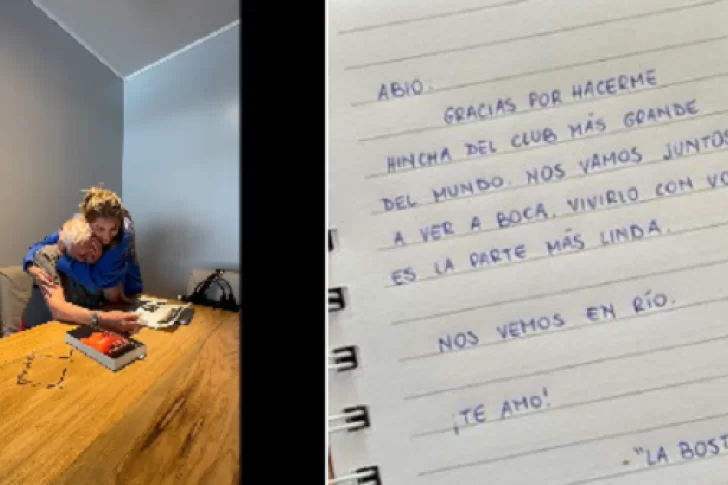 ABIO.
GRACIAS POR HACERME
HINCHA DEL CLUB MÁS GRANDE
DEL MUNDO. NOS VAMOS JUNTOS
A VER A BOCA. VIVIRLO CON VO
ES LA PARTE MÁS LINDA.
NOS VEMOS EN RÍO.
¡TE AMO!
-"LA BOST